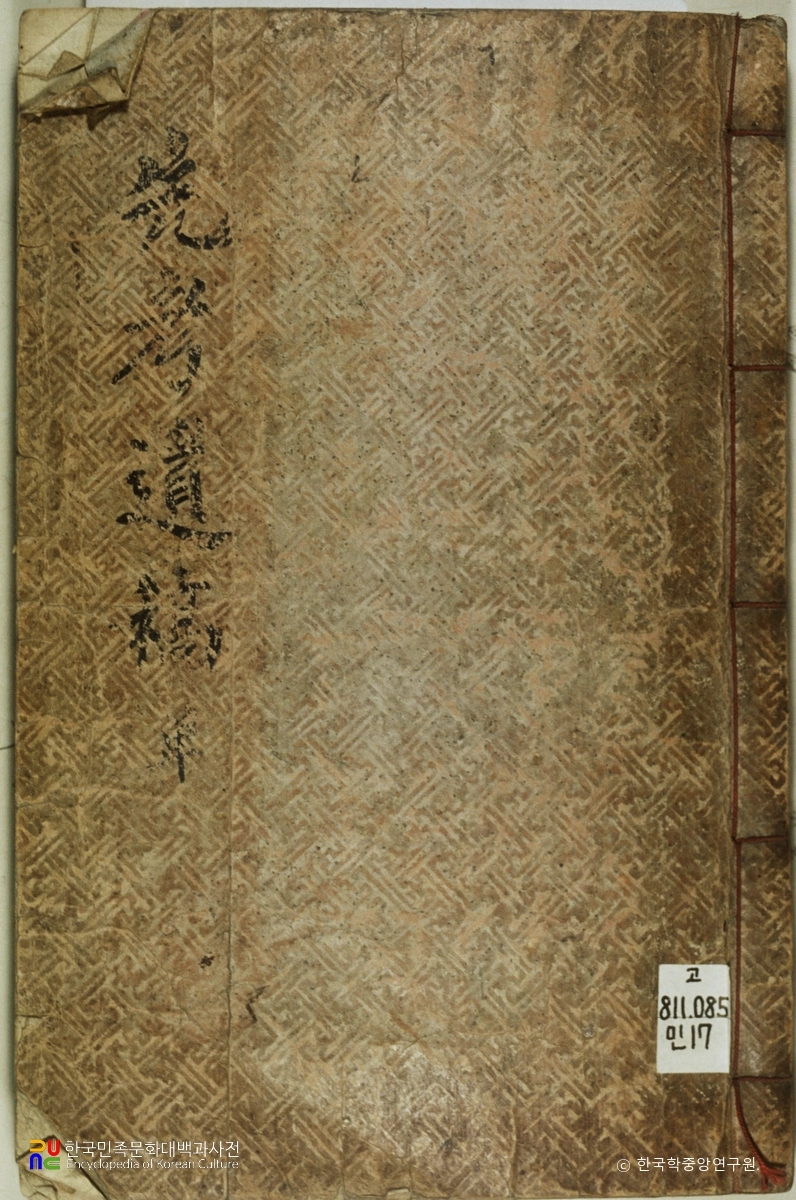 先考遺稿
고
811.085
민17
한국민족문화대백과사전
Encyclopedia of Korean Culture
© 한국학중앙연구원